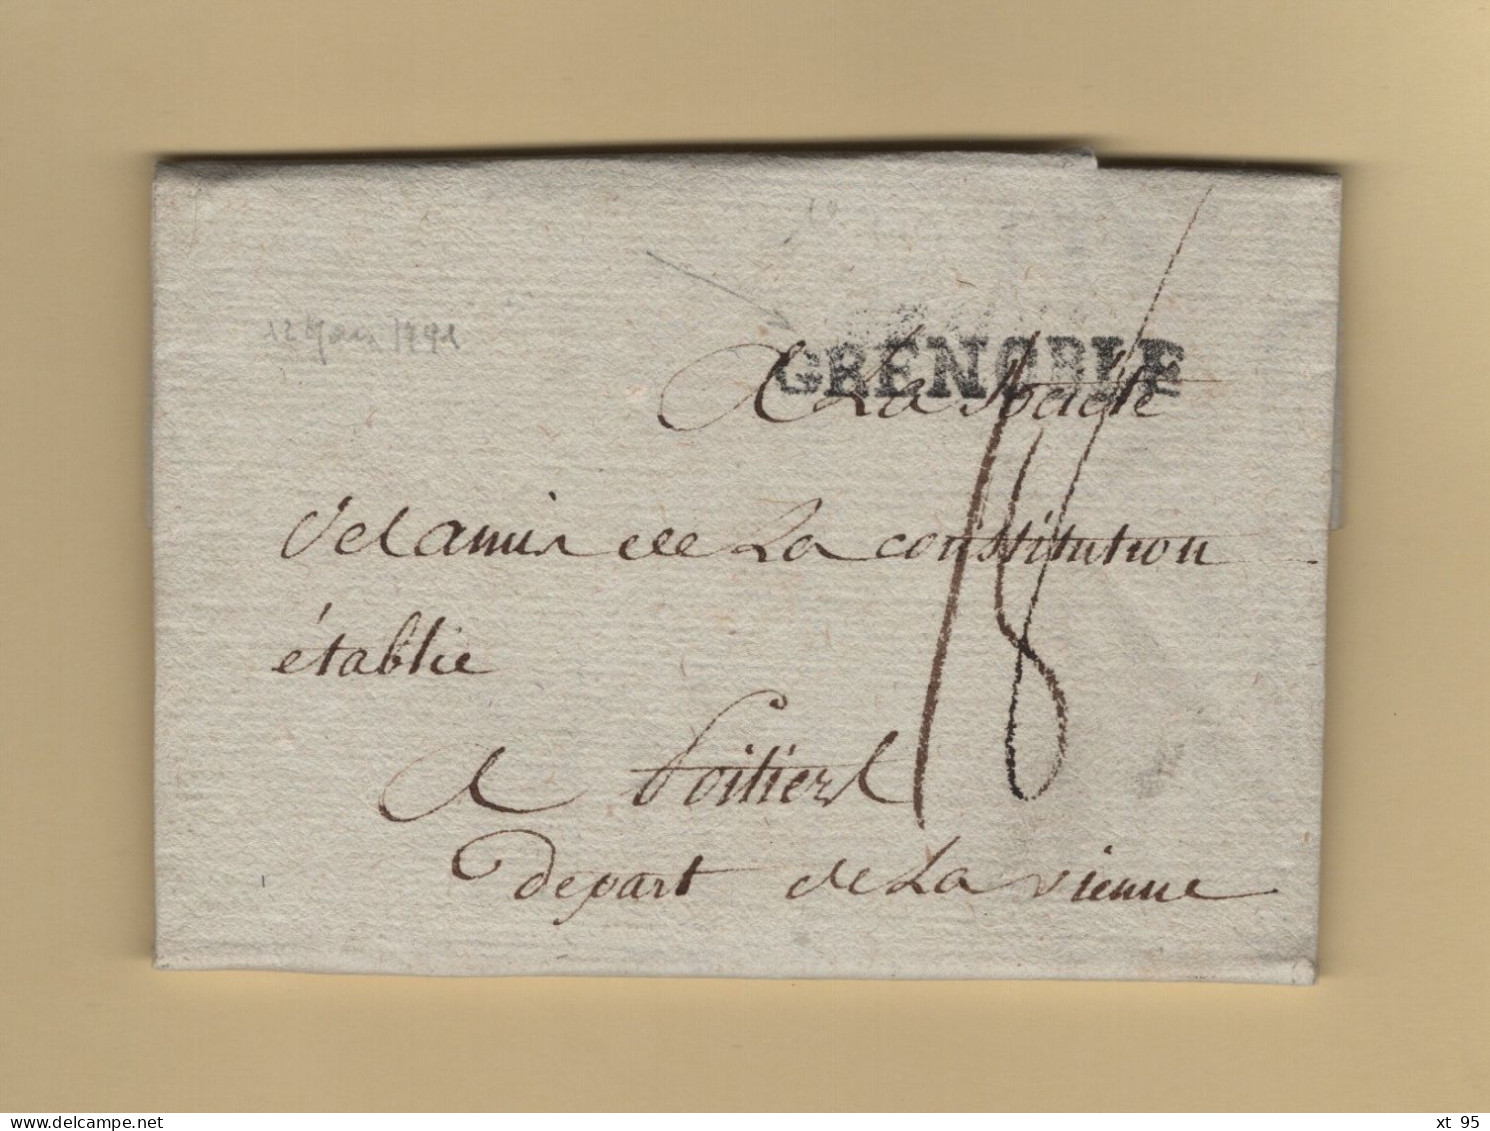 12 1791
GRENOBLE
A La Société
des amis de La constitution
établie
18
A Poitiers
Depart de La vienne
www.delcampe.net
xt 95